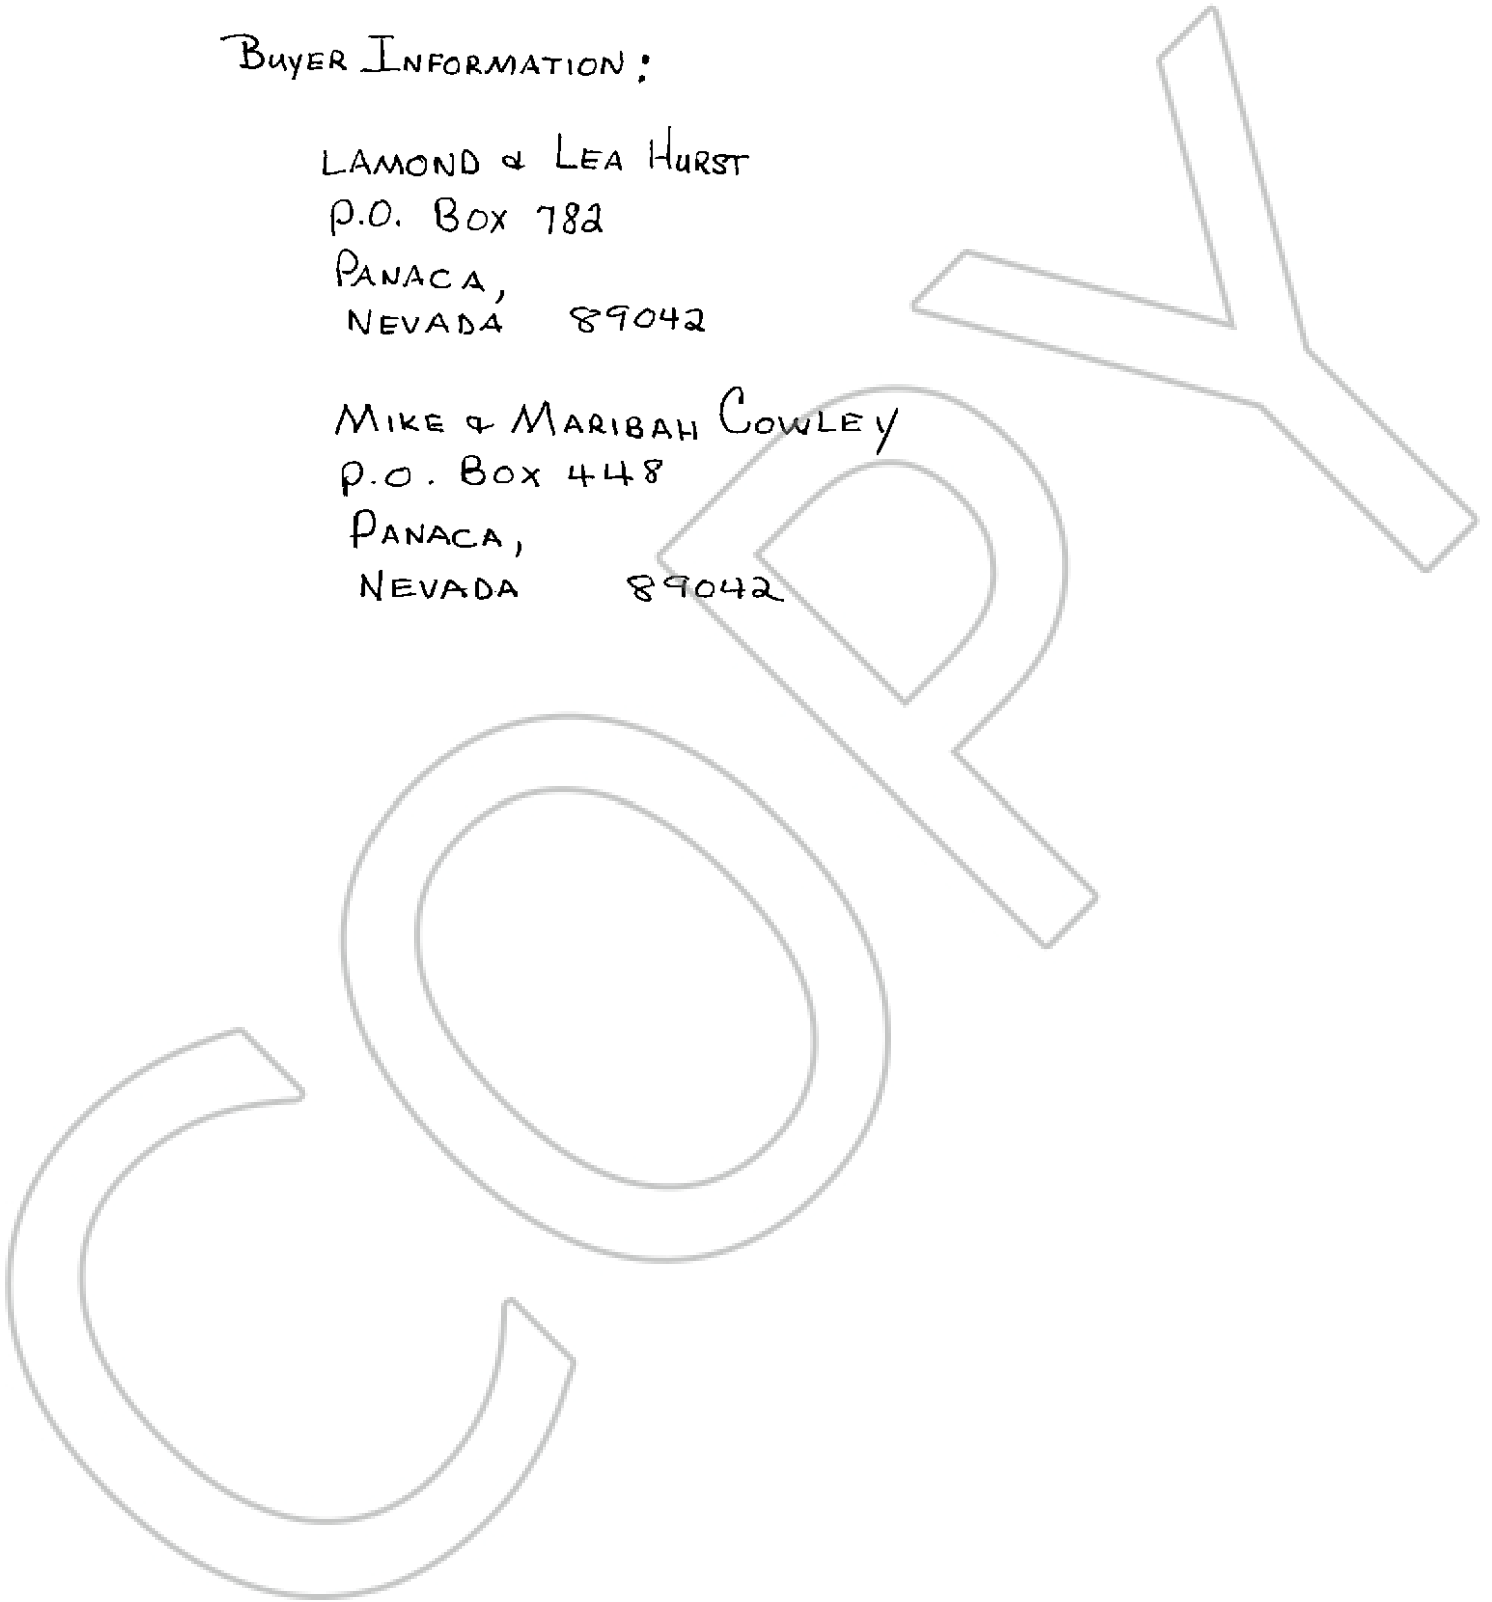 BUYER INFORMATION:
LAMOND & LEA HURST
P.O. BOX 782
PANACA,
NEVADA 89042
MIKE & MARIBAH COWLEY
P.O. BOX 448
PANACA,
NEVADA 89042
COPY